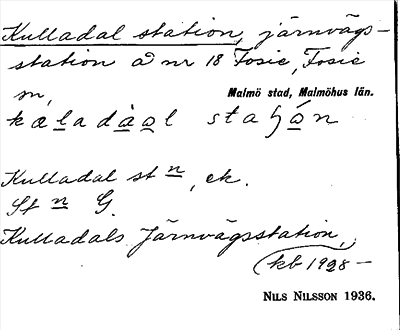 Kulladal station, järnvägs-
station å nr 18 Fosie, Fosie
sn,
Malmö stad, Malmöhus län.
kæladàal staʃón
Kulladal st n, ek.
St n G.
Kulladals Järnvägsstation,
(kb 1928 -
NILS NILSSON 1936.